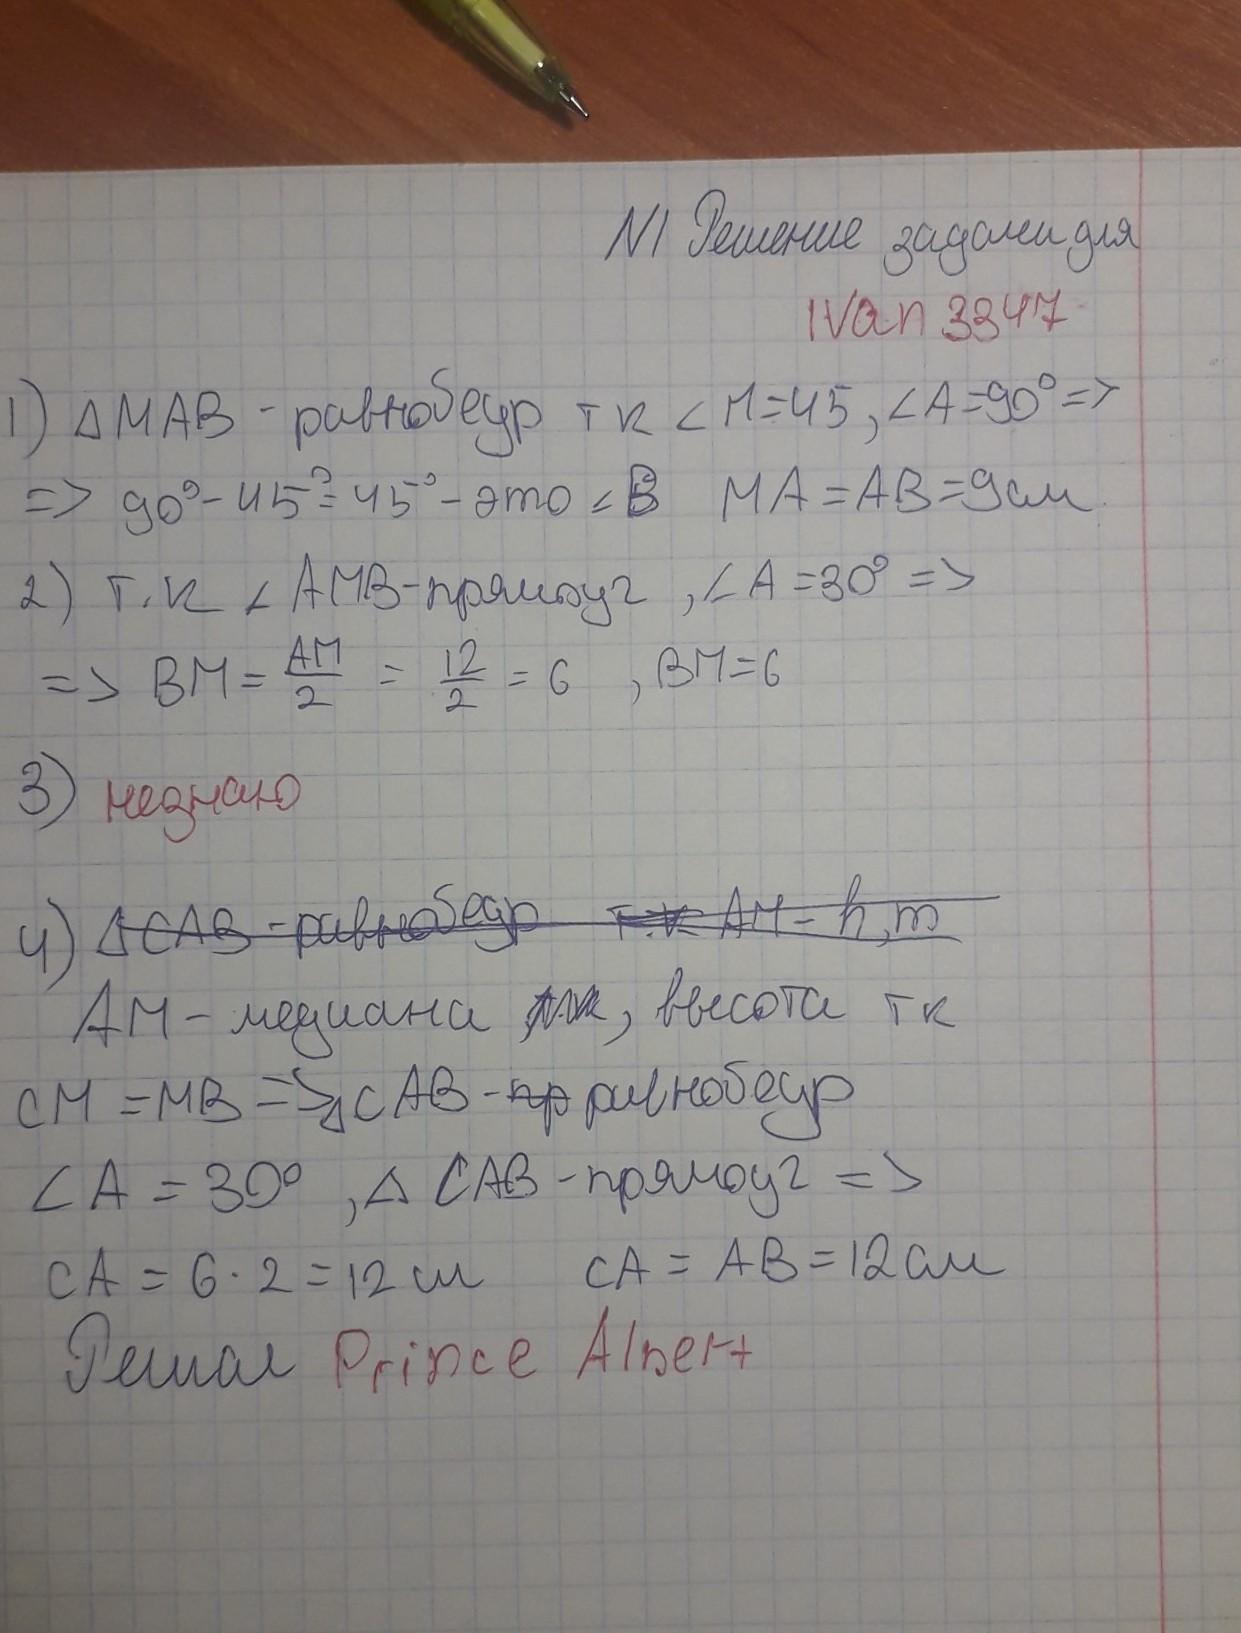 N1 Решение задачи для
IVan 3347
1) △MAB - равнобедр т к ∠M=45, ∠A=90° =>
=> 90°-45°=45° - это ∠B MA=AB=9см
2) т.к ∠AMB-прямоуг, ∠A=30° =>
=> BM = AM/2 = 12/2 = 6 , BM=6
3) незнаю
4) △CAB - равнобедр т.к AM - h, m
AM - медиана, высота тк
CM = MB => △CAB - пр равнобедр
∠A = 30° , △ CAB - прямоуг =>
CA = 6·2 = 12см CA = AB = 12см
Решал Prince Albert